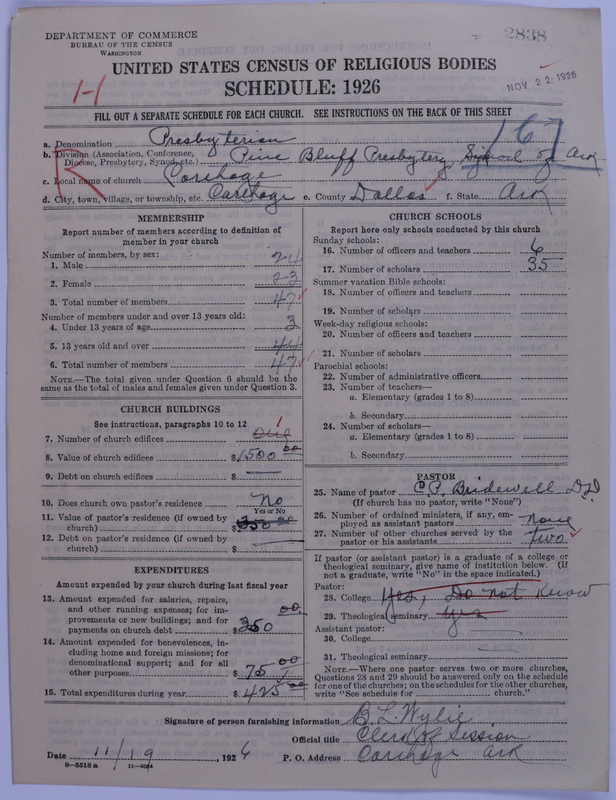 DEPARTMENT OF COMMERCE
BUREAU OF THE CENSUS
WASHINGTON
2838
UNITED STATES CENSUS OF RELIGIOUS BODIES
SCHEDULE: 1926
NOV 22 1926
H
FILL OUT A SEPARATE SCHEDULE FOR EACH CHURCH. SEE INSTRUCTIONS ON THE BACK OF THIS SHEET
a. Denomination Presbyterian
167
b. Division (Association, Conference, Diocese, Presbytery, Synod, etc.) Pine Bluff Presbytery Synod of Ark
R
c. Local name of church Carthage
d. City, town, village, or township, etc. Carthage e. County Dallas f. State Ark
MEMBERSHIP
Report number of members according to definition of
member in your church
Number of members, by sex:
1. Male 24
2. Female 23
3. Total number of members 47
Number of members under and over 13 years old:
4. Under 13 years of age 3
5. 13 years old and over 44
6. Total number of members 47
NOTE.—The total given under Question 6 should be the
same as the total of males and females given under Question 3.
CHURCH BUILDINGS
See instructions, paragraphs 10 to 12
7. Number of church edifices One 1
8. Value of church edifices $1500 00
9. Debt on church edifices $
10. Does church own pastor's residence No
Yes or No
11. Value of pastor's residence (if owned by
church) $350 00
12. Debt on pastor's residence (if owned by
church) $
EXPENDITURES
Amount expended by your church during last fiscal year
13. Amount expended for salaries, repairs,
and other running expenses; for im-
provements or new buildings; and for
payments on church debt $350 00
14. Amount expended for benevolences, in-
cluding home and foreign missions; for
denominational support; and for all
other purposes $75 00
15. Total expenditures during year $425 00
CHURCH SCHOOLS
Report here only schools conducted by this church
Sunday schools:
16. Number of officers and teachers 6
17. Number of scholars 35
Summer vacation Bible schools:
18. Number of officers and teachers
19. Number of scholars
Week-day religious schools:
20. Number of officers and teachers
21. Number of scholars
Parochial schools:
22. Number of administrative officers
23. Number of teachers—
a. Elementary (grades 1 to 8)
b. Secondary
24. Number of scholars—
a. Elementary (grades 1 to 8)
b. Secondary
PASTOR
25. Name of pastor C. P. Bridewell D.D
(If church has no pastor, write "None")
26. Number of ordained ministers, if any, em-
ployed as assistant pastors none
27. Number of other churches served by the
pastor or his assistants two
If pastor (or assistant pastor) is a graduate of a college or
theological seminary, give name of institution below. (If
not a graduate, write "No" in the space indicated.)
Pastor:
28. College Yes, Do not Know
29. Theological seminary Yes
Assistant pastor:
30. College
31. Theological seminary
NOTE.—Where one pastor serves two or more churches,
Questions 28 and 29 should be answered only on the schedule
for one of the churches; on the schedules for the other churches,
write "See schedule for church."
Signature of person furnishing information B. L. Wylie
Official title Clerk of Session
Date 11/19, 1926 P. O. Address Carthage Ark
8-5518 a 11-9084